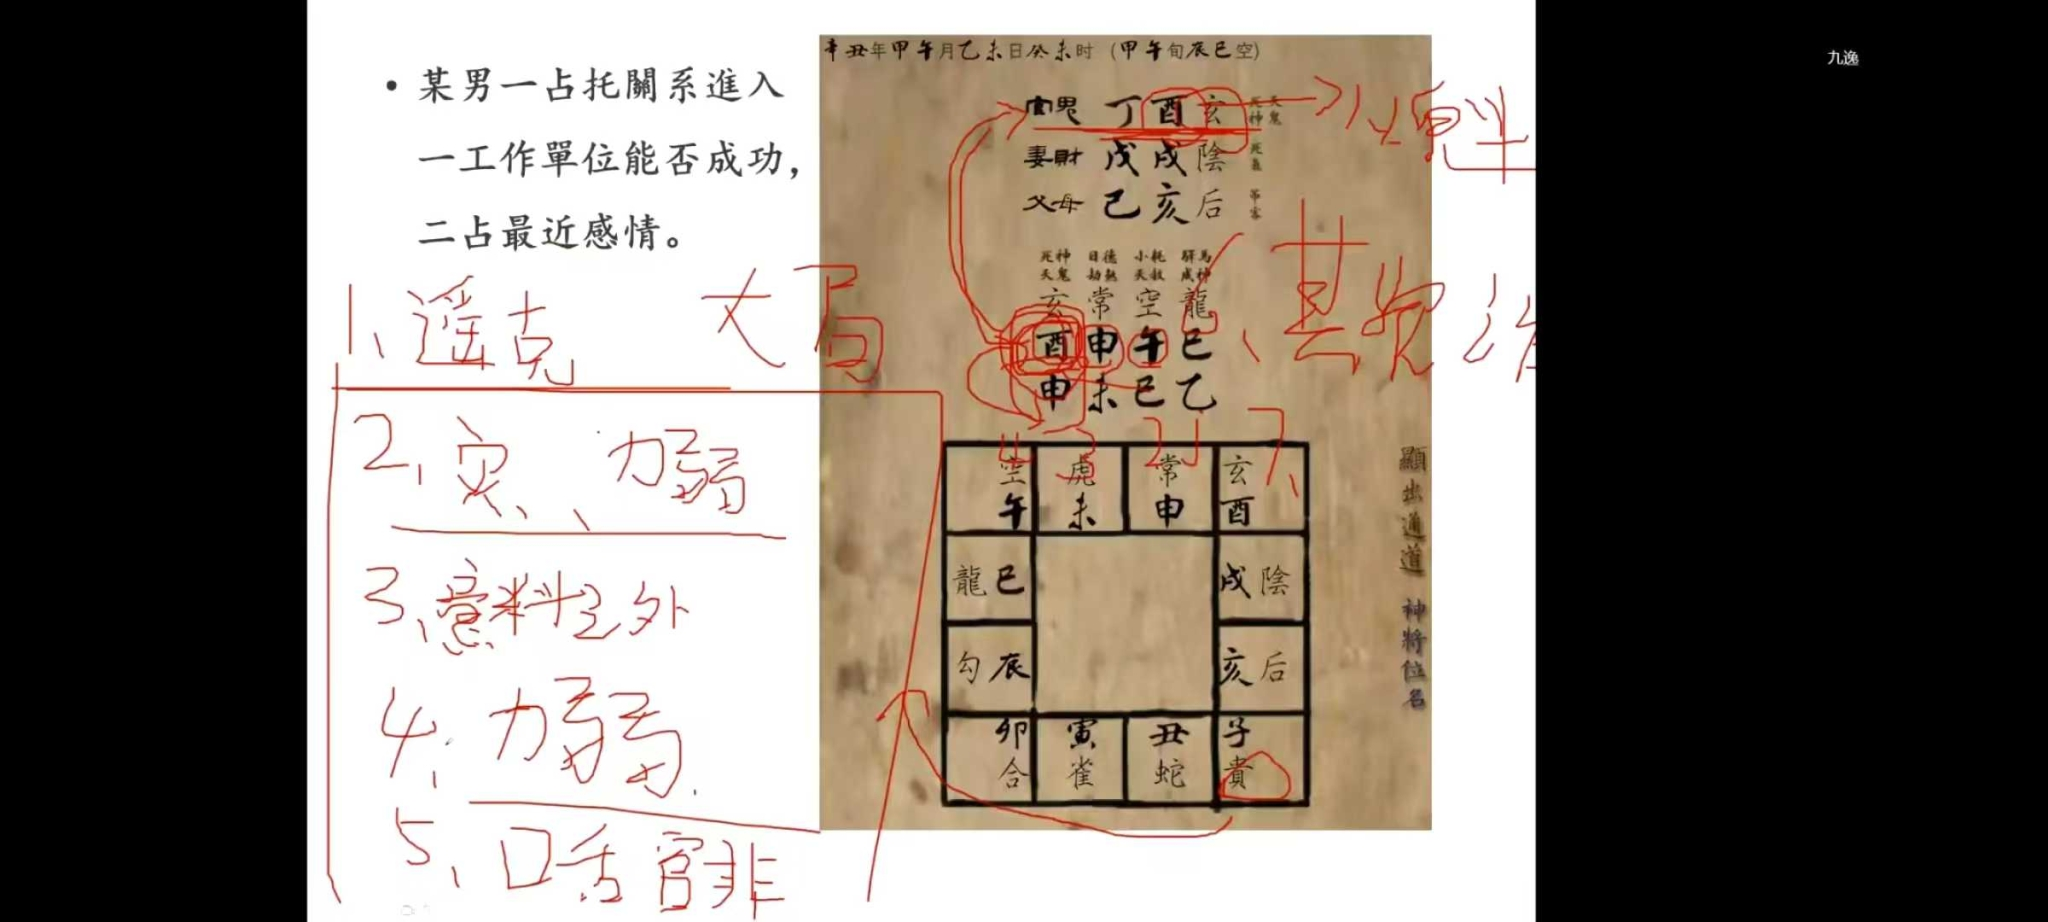 九逸
• 某男一占托關系進入
一工作單位能否成功，
二占最近感情。
辛丑年甲午月乙未日癸未时 (甲午旬辰巳空)
官鬼 丁酉玄
死神 天鬼
妻財 戊戌陰
父母 己亥后
死神 日德 小耗 驛馬
天鬼 劫煞 天赦 成神
玄常空龍
酉申午巳
申未巳乙
4 3 2 1
空 虎 常 玄
午 未 申 酉
龍巳 戌陰
勾辰 亥后
卯 寅 丑 子
合 雀 蛇 貴
顯出通道 神將位名
1、遥克 大局
2、灾、力弱
3、意料之外
4、力弱
5、口舌官非
7、